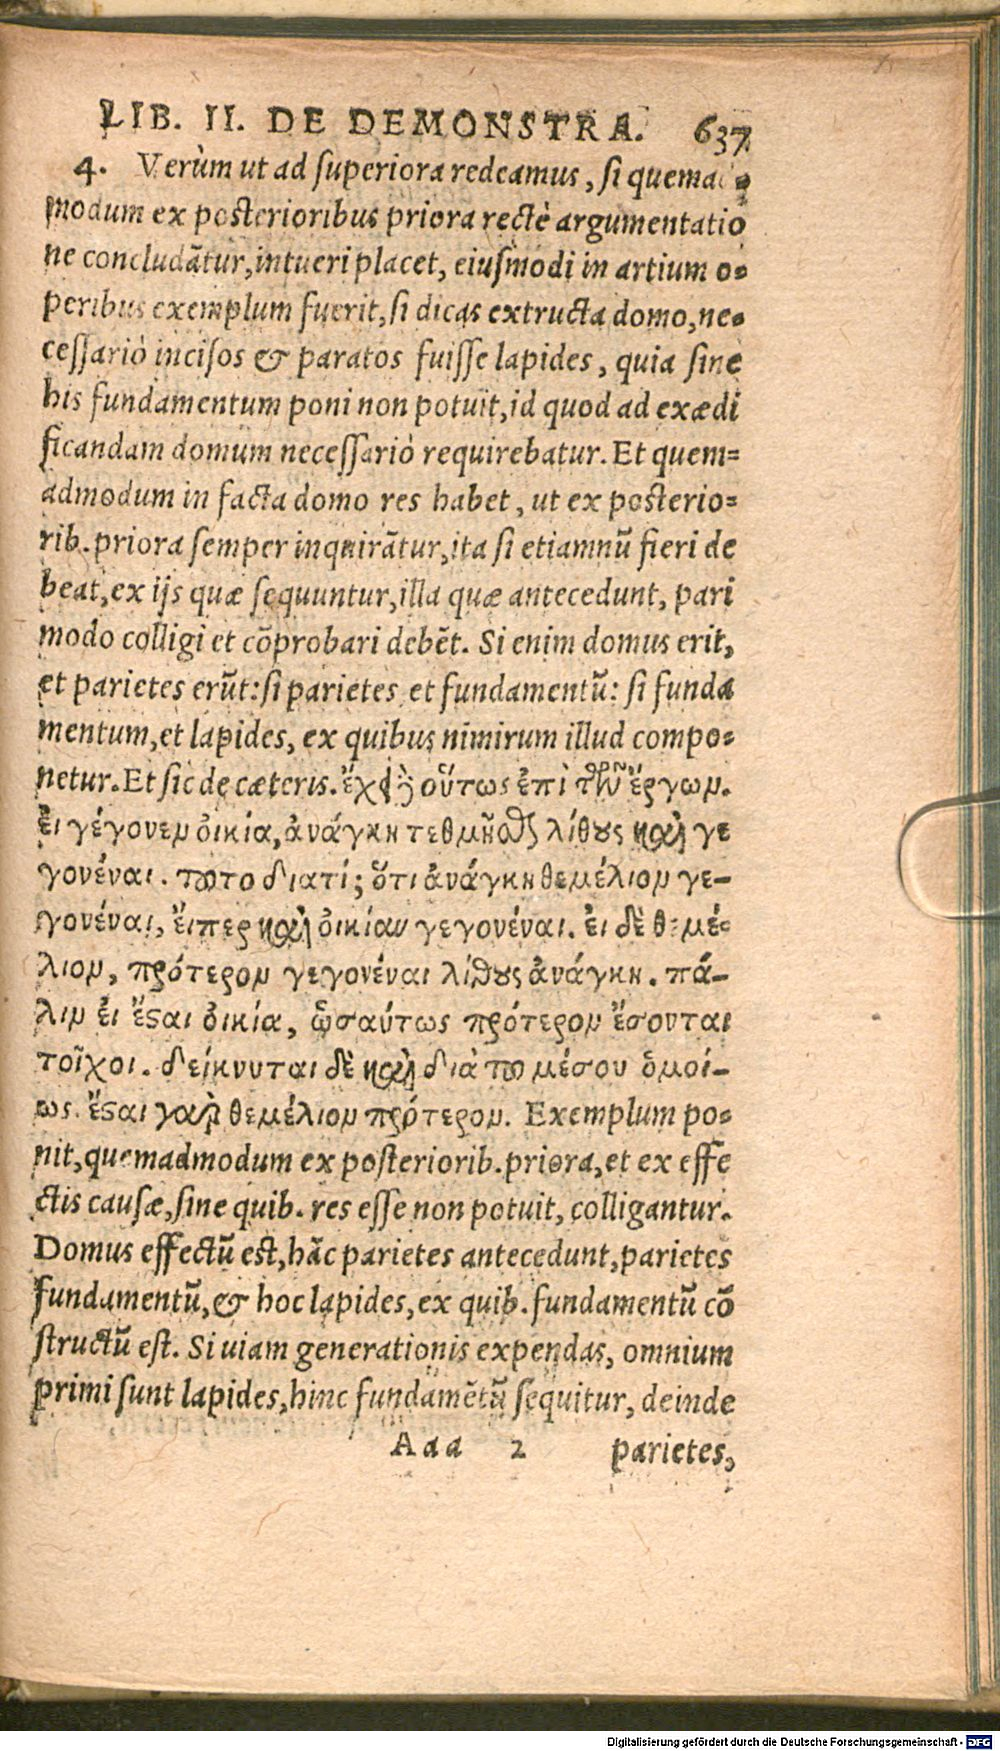 LIB. II. DE DEMONSTRA. 637
4. Verùm ut ad superiora redeamus, si quemad-
modum ex posterioribus priora rectè argumentatio
ne concludãtur, intueri placet, eiusmodi in artium o-
peribus exemplum fuerit, si dicas extructa domo, ne-
cessariò incisos & paratos fuisse lapides, quia sine
his fundamentum poni non potuit, id quod ad exædi
ficandam domum necessariò requirebatur. Et quem-
admodum in facta domo res habet, ut ex posterio-
rib. priora semper inquirãtur, ita si etiamnũ fieri de
beat, ex ijs quæ sequuntur, illa quæ antecedunt, pari
modo colligi et cõprobari debẽt. Si enim domus erit,
et parietes erũt: si parietes et fundamentũ: si funda
mentum, et lapides, ex quibus nimirum illud compo-
netur. Et sic de cæteris. ἔχει δ' οὕτως ἐπὶ τῶν ἔργων.
εἰ γέγονεν οἰκία, ἀνάγκη τετμῆσθαι λίθους καὶ γε
γονέναι. τοῦτο διατί; ὅτι ἀνάγκη θεμέλιον γε-
γονέναι, εἴπερ καὶ οἰκίαν γεγονέναι. εἰ δὲ θεμέ-
λιον, πρότερον γεγονέναι λίθους ἀνάγκη. πά-
λιν εἰ ἔσται οἰκία, ὡσαύτως πρότερον ἔσονται
τοῖχοι. δείκνυται δὲ καὶ διὰ τοῦ μέσου ὁμοί-
ως. ἔσται γὰρ θεμέλιον πρότερον. Exemplum po-
nit, quemadmodum ex posteriorib. priora, et ex effe
ctis causæ, sine quib. res esse non potuit, colligantur.
Domus effectũ est, hãc parietes antecedunt, parietes
fundamentũ, & hoc lapides, ex quib. fundamentũ cõ
structũ est. Si uiam generationis expendas, omnium
primi sunt lapides, hinc fundamẽtũ sequitur, deinde
Aaa 2 parietes,
Digitalisierung gefördert durch die Deutsche Forschungsgemeinschaft - DFG